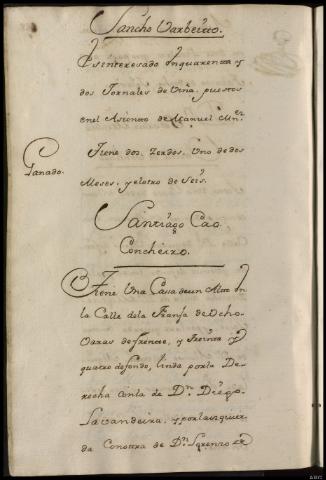 Sancho Varbeitto.
Es interesado en quarenta y
dos Jornales de Viña, puestos
en el Asiento de Manuel Mnz
Ganado.
Tiene dos Zerdos, uno de dos
Meses, y el otro de Seis.
Santiago Cao
Concheiro.
Tiene Una Casa de un Alto en
la Calle de la Franja de Ocho
Varas de frente, y Treinta y
quatro de fondo, linda por la De-
recha con la de Dn. Diego
Lavandeira, y por la izquier-
da Con otra de Dn. Lorenzo